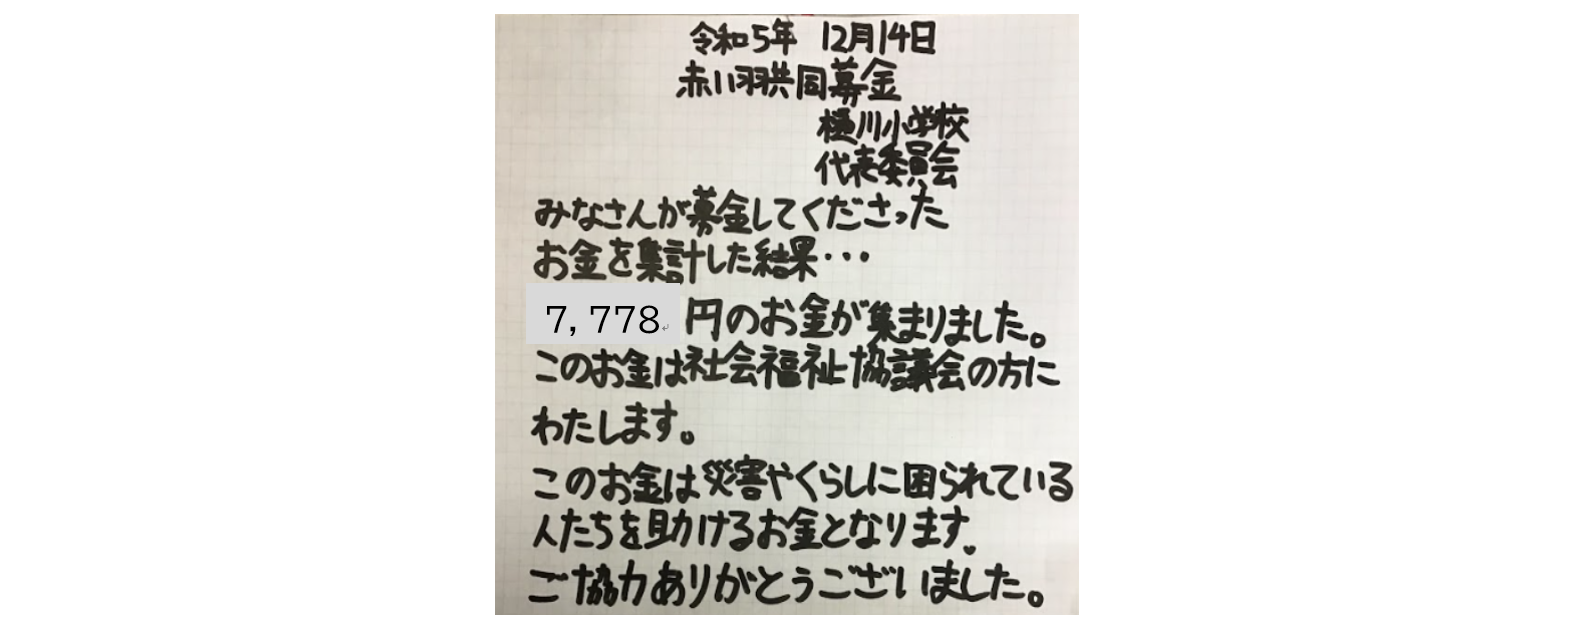 令和5年 12月14日
赤い羽共同募金
樋川小学校
代表委員会
みなさんが募金してくださった
お金を集計した結果・・・
7,778 円のお金が集まりました。
このお金は社会福祉協議会の方に
わたします。
このお金は災害やくらしに困られている
人たちを助けるお金となります。
ご協力ありがとうございました。